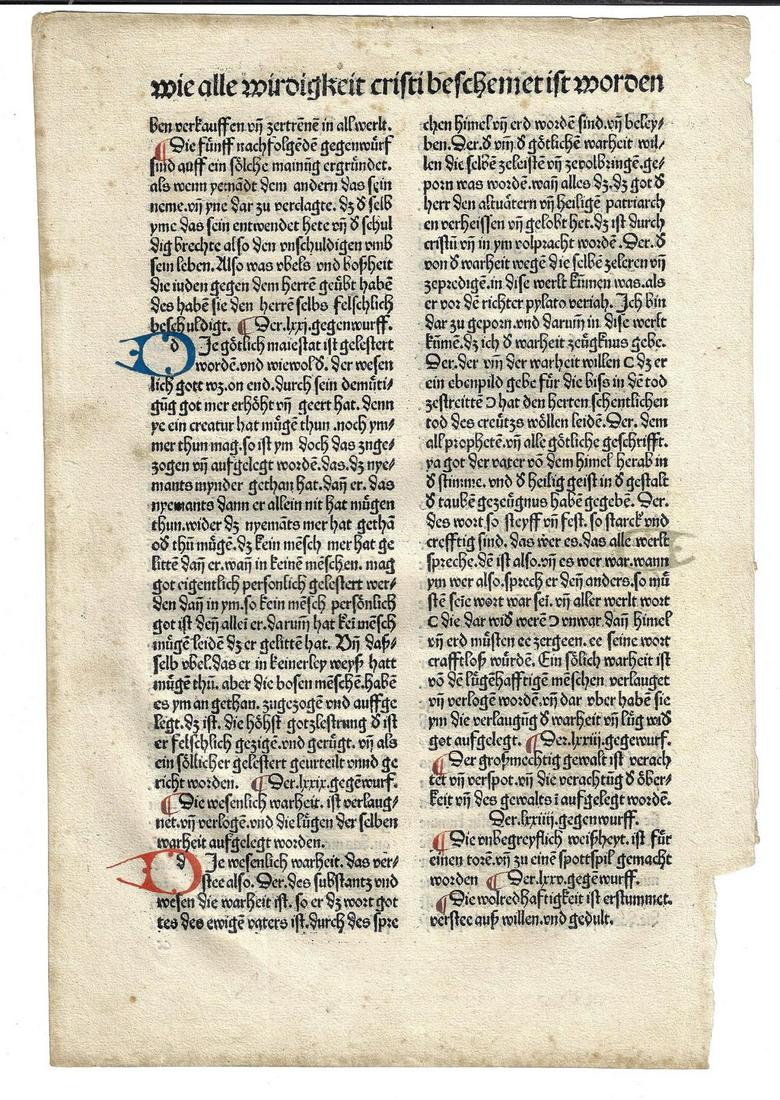 wie alle wirdigkeit cristi beschemet ist worden
ben verkauffen vn̄ zertrēnē in all werlt.
¶ Die fünff nachfolgēdē gegenwürf
sind auff ein sölche mainūg ergründet.
als wenn yemādt dem andern das sein
neme.vn̄ yne dar zu verclagte. dz d̄ selb
yme das sein entwendet hete vn̄ d̄ schul
dig brechte also den vnschuldigen vmb
sein leben. Also was vbels vnd boßheit
die iuden gegen dem herrē geübt haben
des habē sie den herrē selbs felschlich
beschuldigt. ¶ Der.lxxj.gegenwurff.
DJe götlich maiestat ist gelestert
wordē.vnd wiewold̄. der wesen
lich gott wz.on end.durch sein demüti⸗
gūg got mer erhöht vn̄ geert hat. denn
ye ein creatur hat mügē thun .noch ym⸗
mer thun mag.so ist ym doch das zuge⸗
zogen vn̄ aufgelegt wordē.das.dz nye⸗
mants mynder gethan hat.dan̄ er. das
nyemants dann er allein nit hat mügen
thun.wider dz nyemāts mer hat gethā
od̄ thū mügē.dz kein mēsch mer hat ge
littē dan̄ er.wan̄ in keinē mēschen. mag
got eigentlich personlich gelestert wer⸗
den dan̄ in ym.so kein mēsch persönlich
got ist den̄ allei er.darum̄ hat kei mēsch
mügē leidē dz er gelittē hat. Vn̄ daß⸗
selb vbel.das er in keinerley weyß hatt
mügē thū. aber die bosen mēschē.habē
es ym an gethan. zugezogen vnd auffge
legt.dz ist. die höhst gotzlestrung d̄ ist
er felschlich gezigē.vnd gerügt. vn̄ als
ein söllicher gelestert geurteilt vnnd ge
richt worden. ¶ Der.lxxix.gegēwurf.
¶ Die wesenlich warheit. ist verlaug⸗
net.vn̄ verlogē.vnd die lügen der selben
warheit aufgelegt worden.
DJe wesenlich warheit. das ver⸗
stee also. Der.des substantz vnd
wesen die warheit ist. so er dz wort got
tes des ewigē vaters ist.durch des spre
chen himel vn̄ erd wordē sind.vn̄ beley⸗
ben.Der.d̄ vm̄ d̄ götlichē warheit wil⸗
len die selbē zeleistē vn̄ zevolbringē.ge⸗
porn was wordē.wan̄ alles dz.dz got d̄
herr den altuātern vn̄ heiligē patriarch
en verheissen vn̄ gelobt het.dz ist durch
cristū vn̄ in ym volpracht wordē. Der.d̄
von d̄ warheit wegē die selbē zeleren vn̄
zepredigē.in dise werlt kūmen was.als
er vor dē richter pylato veriah. Ich bin
dar zu geporn.vnd darum̄ in dise werlt
kūmē.dz ich d̄ warheit zeügknus gebe.
Der.der vm̄ der warheit willen C dz er
ein ebenpild gebe für die biß in dē tod
zestreittē Ɔ hat den herten schentlichen
tod des creützs wöllen leidē.Der. dem
all prophetē.vn̄ alle götliche geschrifft.
ya got der vater vō dem himel herab in
d̄ stimme. vnd d̄ heilig geist in d̄ gestalt
d̄ taubē gezeügnus habē gegebē. Der.
des wort.so steyff vn̄ fest. so starck vnd
crefftig sind. das wer es.das alle werlt
spreche.dē ist also.vn̄ es wer war.wann
ym wer also.sprech er den̄ anders.so mü
stē seie wort war sei. vn̄ aller werlt wort
C die dar wid̄ werē Ɔ vnwar.dan̄ himel
vn̄ erd müsten ee zergeen. ee seine wort
crafftloß würdē. Ein sölich warheit ist
vō dē lügēhafftigē mēschen verlauget
vn̄ verlogē wordē.vn̄ dar vber habē sie
ym die verlaugūg d̄ warheit vn̄ lüg wid̄
got aufgelegt. ¶ Der.lxxiij.gegēwurf.
¶ Der großmechtig gewalt ist verach
tet vn̄ verspot.vn̄ die verachtūg d̄ öber⸗
keit vn̄ des gewalts ī aufgelegt wordē.
Der.lxxiiij.gegenwurff.
¶ Die vnbegreyflich weißheyt. ist für
einen torē.vn̄ zu einē spottspil gemacht
worden ¶ Der.lxxv.gegēwurff.
¶ Die wolredhaftigkeit ist erstummet.
verstee auß willen.vnd gedult.